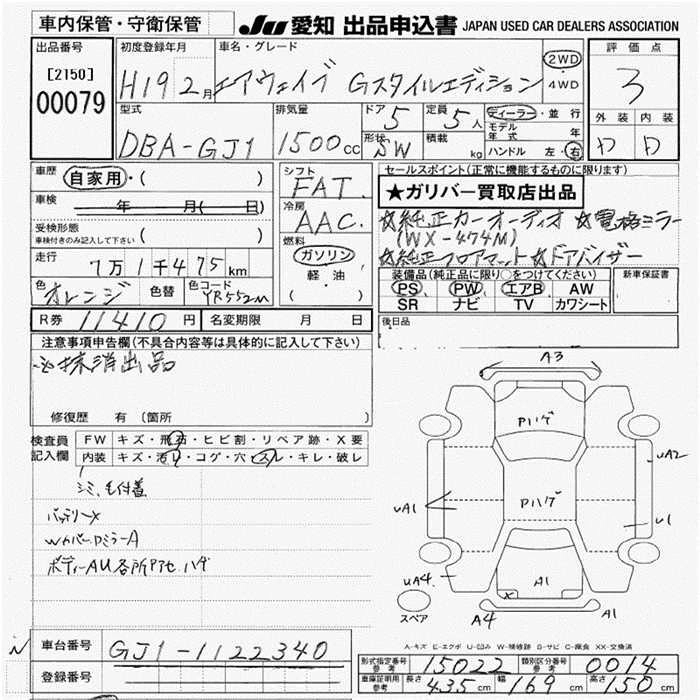 車内保管・守衛保管
JU 愛知 出品申込書 JAPAN USED CAR DEALERS ASSOCIATION
出品番号 初度登録年月 車名・グレード 評価点
[2150] H19 2月 エアウェイブ Gスタイルエディション 2WD ・ 4WD 3
00079
型式 排気量 ドア 定員 ディーラー・並行 外装 内装
DBA-GJ1 1500cc 5 5人 モデル年式 年 D D
形状 SW 積載 kg ハンドル 左・右
車歴 自家用・( ) シフト FAT. セールスポイント(正常に機能するものに限ります)
車検 年 月( 日) 冷房 AAC. ★ガリバー買取店出品
受検形態 燃料 ☆純正カーオーディオ ☆電格ミラー
車検付きのみ記入して下さい ( ) ガソリン (WX-474M)
走行 7万1千475km 軽油 ☆純正フロアマット ☆ドアバイザー
色 オレンジ 色替 色コード YR552M ( )
装備品(純正品に限り○をつけてください) 新車保証書
PS PW エアB AW
SR ナビ TV カワシート
R券 11410円 名変期限 月 日 後日品
注意事項申告欄(不具合内容等は具体的に記入して下さい)
※抹消出品
修復歴 有 (箇所
検査員記入欄 FW キズ・飛石・ヒビ割・リペア跡・X要
内装 キズ・汚レ・コゲ・穴・スレ・キレ・破レ
シミ、毛付着
バッテリーX
WカバーDミラーA
ボディーAU各所
A3
Pハゲ
UA2
UA1 Pハゲ U1
UA4 A1
X
スペア A4 A1
A-キズ E-エクボ U-凹み W-補修跡 S-サビ C-腐食 XX-交換済
車台番号 GJ1-1122340
登録番号
型式指定番号 参考 15022 類別区分番号 参考 0014
車庫証明用 参考 長さ 435cm 幅 169cm 高さ 150cm